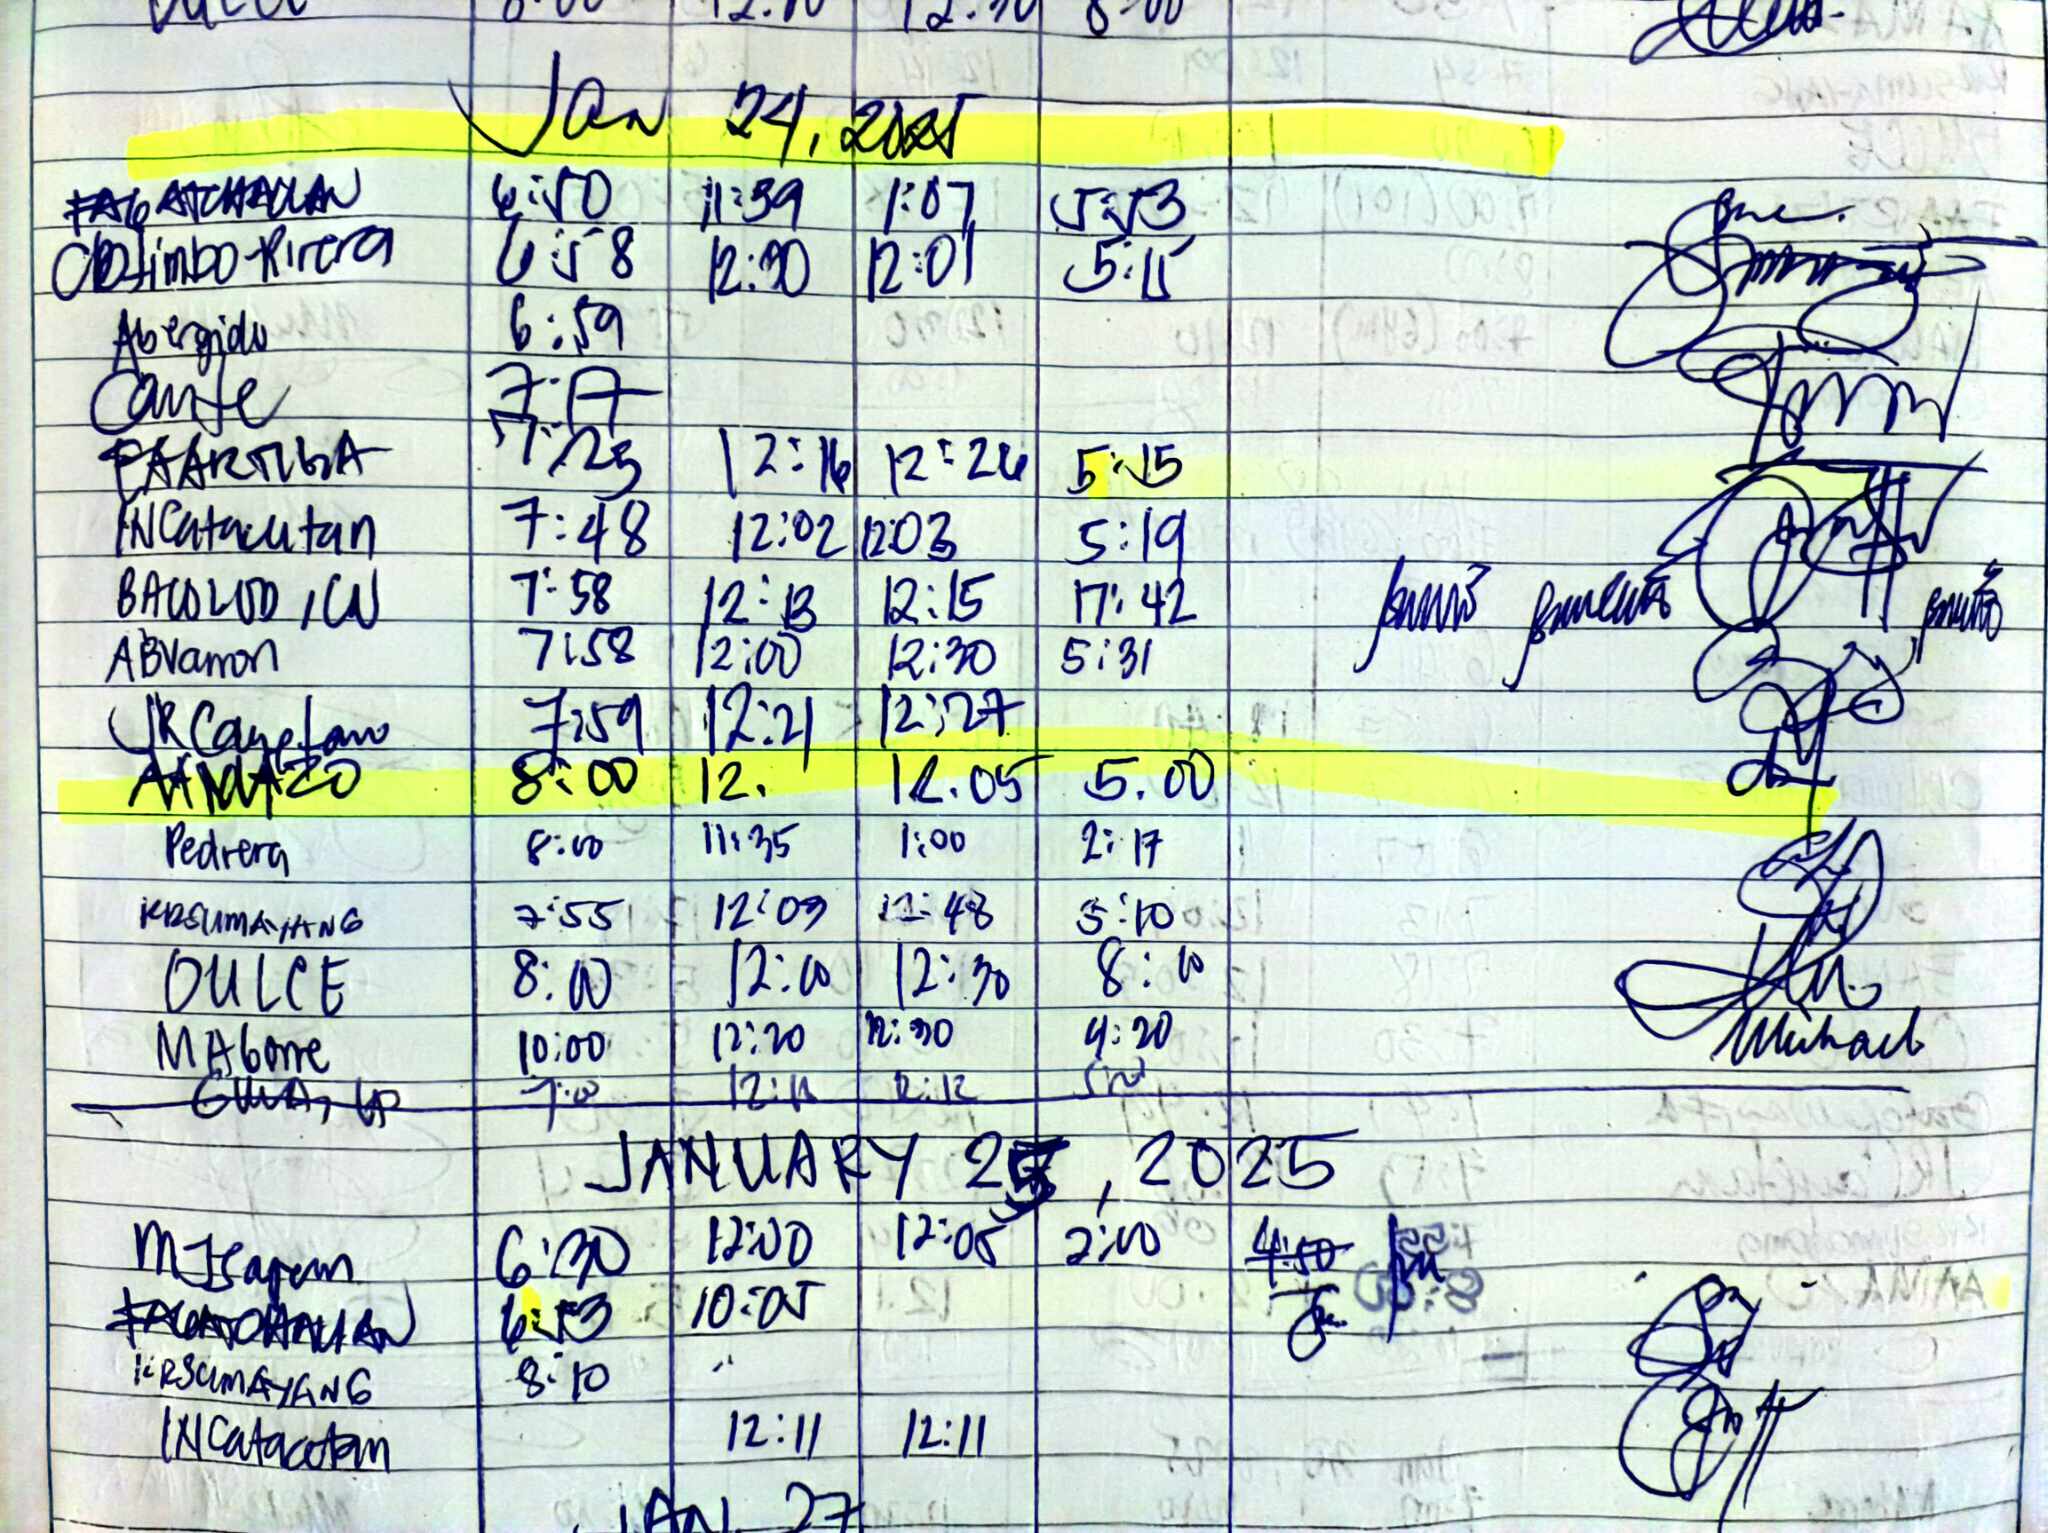 8:00 12:00 12:30 8:00
Jan 24, 2025
FAGATCHALIAN 6:50 11:39 1:07 5:53
6:58 12:30 12:01 5:15
Abergido 6:59
Cante 7:17
FAARTIGA 7:25 12:16 12:26 5:15
INCatacutan 7:48 12:02 12:03 5:19
BACOLOD, CN 7:58 12:13 12:15 17:42
ABVamon 7:58 12:00 12:30 5:31
JRCayetano 7:59 12:21 12:27
AANAZO 8:00 12. 12.05 5.00
Pedrera 8:00 11:35 1:00 2:17
KRSUMAYANG 7:55 12:09 12:48 5:10
DULCE 8:00 12:00 12:30 8:00
MAbone 10:00 12:20 12:30 4:20 Michael
7:00 12:12
JANUARY 25, 2025
6:30 12:00 12:05 2:00 4:50
FAGATCHALIAN 6:53 10:05
KRSUMAYANG 8:10
INCatacutan 12:11 12:11
JAN 27